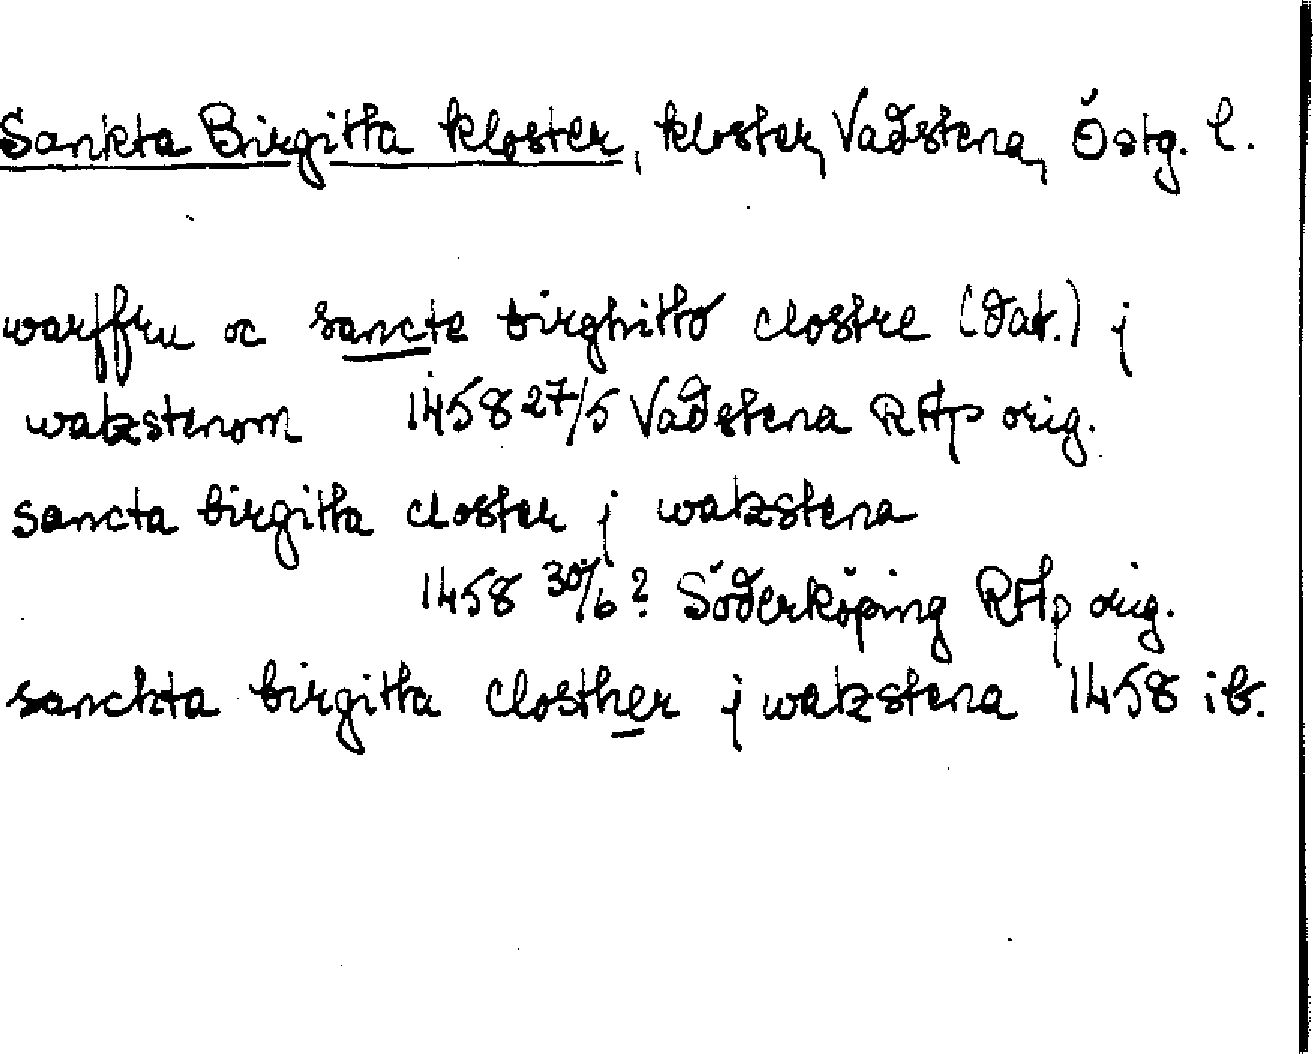 Sankta Birgitta kloster, kloster, Vadstena, Östg. l.
warffru oc sancte birghitto clostre (dat.) j
watzstenom 1458 27/5 Vadstena RAp orig.
sancta birgitta closter j watzstena
1458 30/6? Söderköping RAp orig.
sanckta birgitta closther j watzstena 1458 ib.